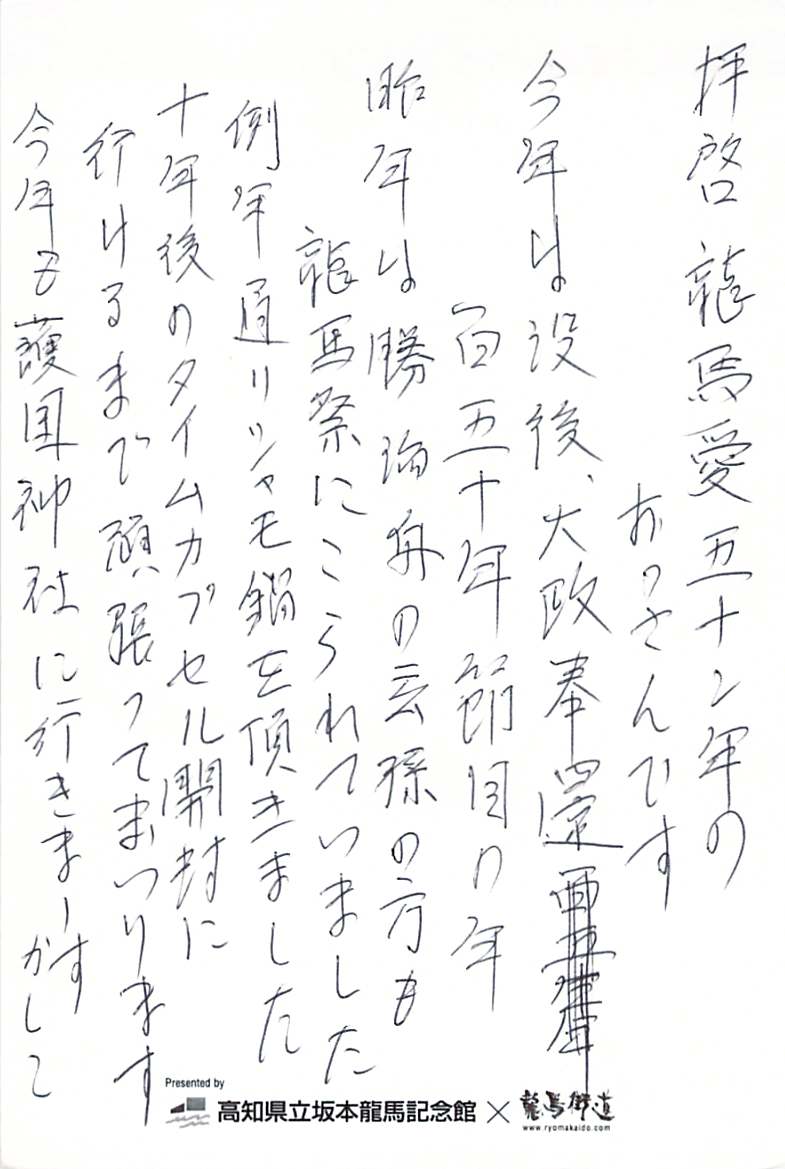 拝啓 龍馬愛五十ン年の
おっさんです
今年は没後、大政奉還
百五十年節目の年
昨年は勝海舟の玄孫の方も
龍馬祭にこられていました
例年通りシャモ鍋を頂きました
十年後のタイムカプセル開封に
行けるまで頑張ってまいります
今年も護国神社に行きまーす
かしこ
Presented by
高知県立坂本龍馬記念館×龍馬街道
www.ryomakaido.com